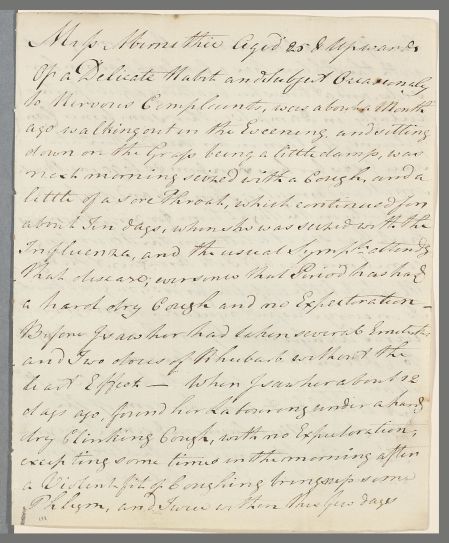 Miss Abernethie Aged 25 & Upwards
Of a Delicate Habit and Subject Occasionaly
to Nervous Complaints, was about a Month
ago walking out in the Evening and sitting
down on the Grass being a little damp, was
next morning seized with a Cough, and a
little of a sore Throat, which continued for
about Ten days, when she was seized with the
Influenza, and the usual Sympts. attendg
that disease, ever since that Period has had
a hard dry Cough and no Expectoration —
Before I saw her had taken several
and Two doses of Rhubarb without the
least Effect — When I saw her about 12
days ago, found her Labouring under a hard
dry Clinking Cough, with no Expectoration,
excepting some times in the morning after
a Violent fit of Coughing brings up some
Phlegm, and Twice within this few days